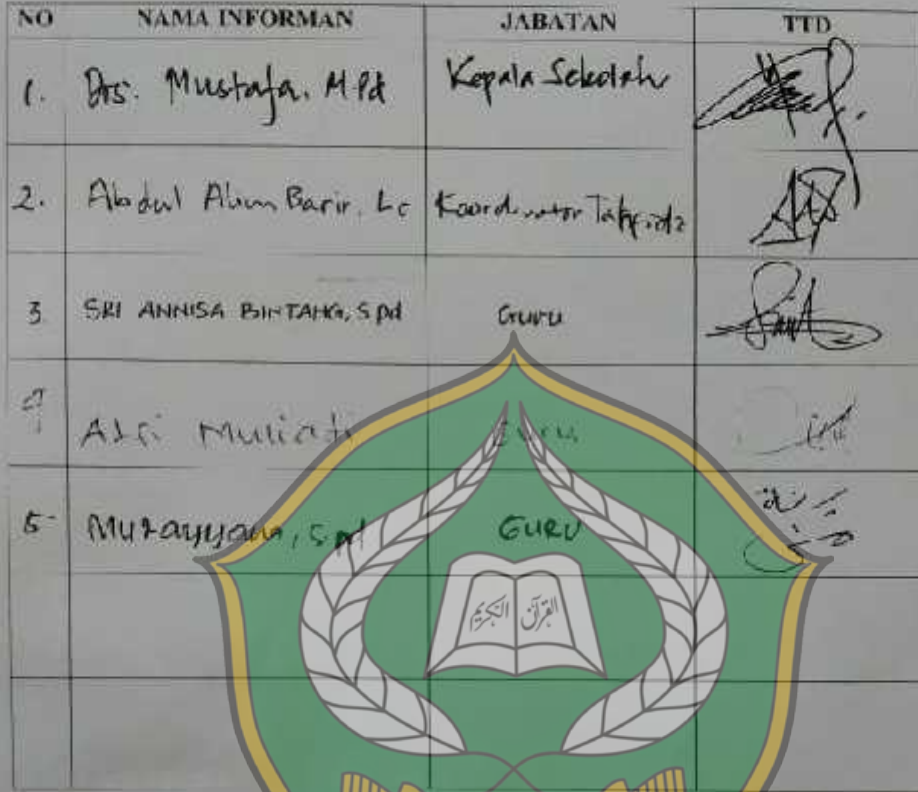 NO NAMA INFORMAN JABATAN TTD
1. Drs. Mustafa. M.Pd Kepala Sekolah
2. Abdul Alim Barir. Lc Koordinator Tahfidz
3. SRI ANNISA BINTANG, S.Pd Guru
4 Asri Muliati Guru
5 Murayyana, S.Pd GURU
القرآن الكريم